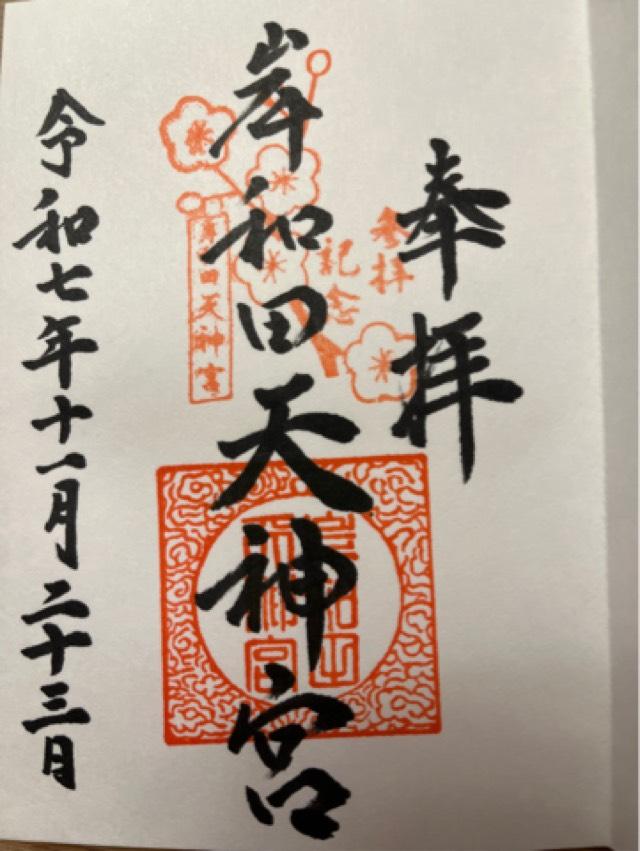 奉拝
参拝
記念
岸和田天神宮
岸和田天神宮
令和七年十一月二十三日